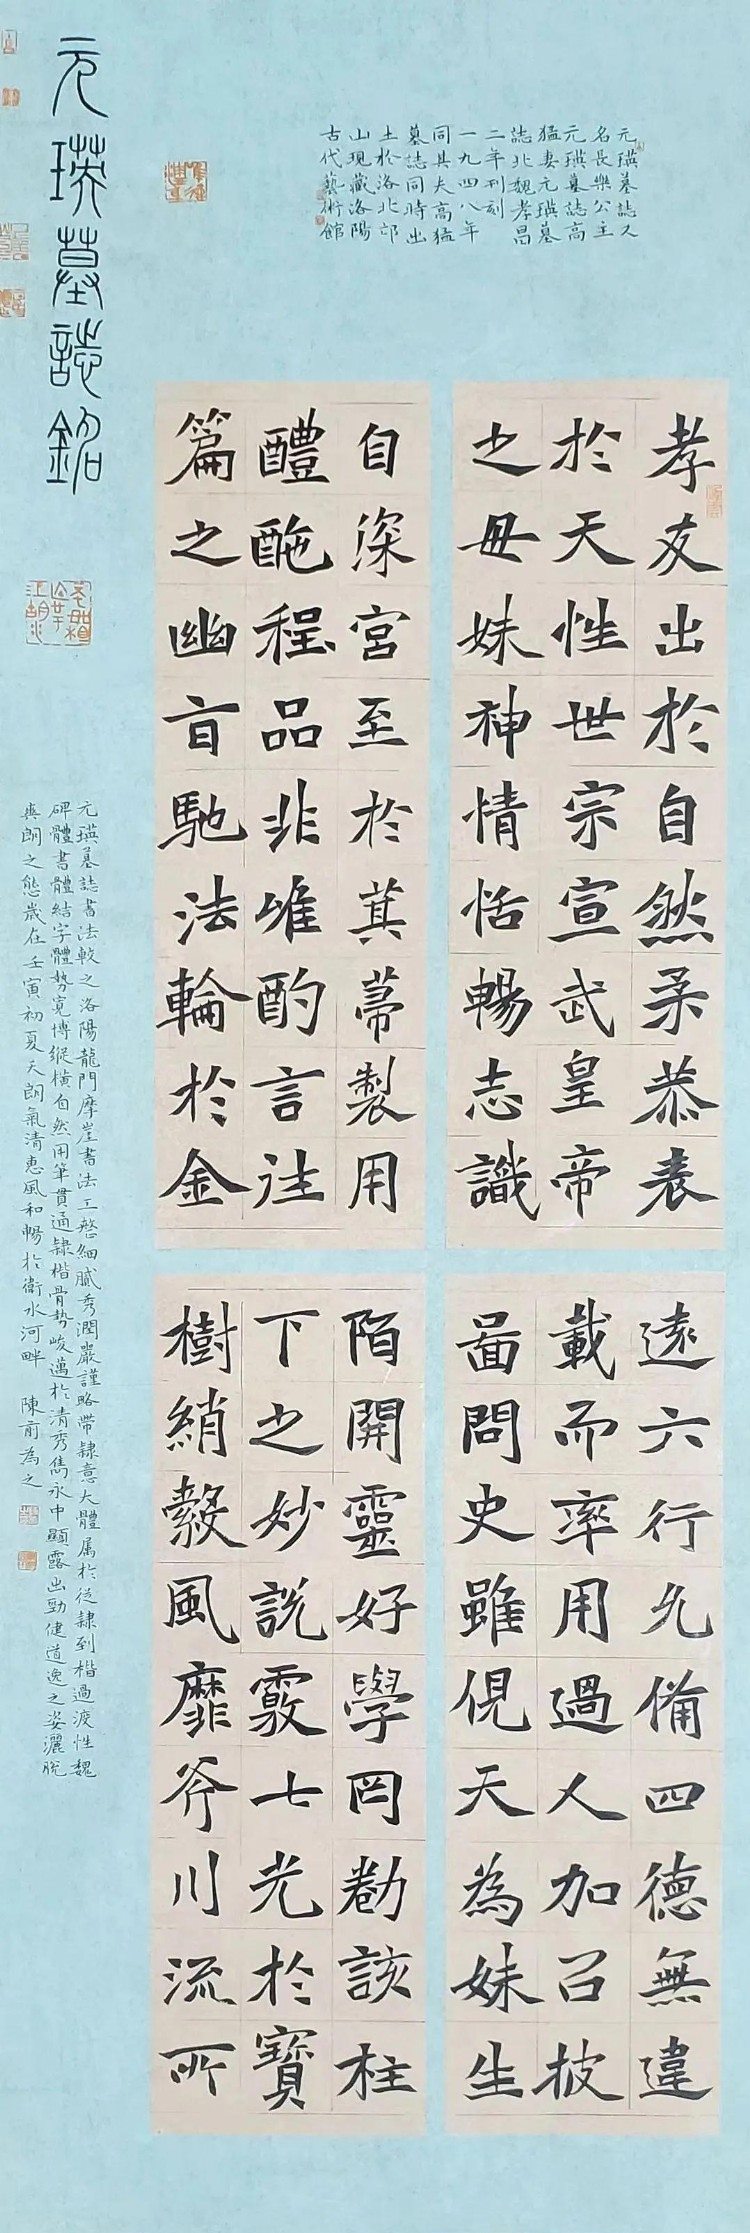 元瑛墓誌又
名長樂公主
元瑛墓誌高
猛妻元瑛墓
誌北魏孝昌
二年刊刻
一九四八年
同其夫高猛
墓誌同時出
土於洛北邙
山現藏洛陽
古代藝術館
孝友出於自然柔恭表
於天性世宗宣武皇帝
之毌妹神情恬暢志識
遠六行允備四德無違
載而率用過人加㠯披
啚問史雖俔天為妹生
自深宮至於萁蒂製用
醴酏程品非唯酌言往
篇之幽旨馳法輪於金
陌開靈好學罔勌該柱
下之妙說覈七光於寶
樹綃縠風靡斧川流所
元瑛墓誌銘
元瑛墓誌書法較之洛陽龍門摩崖書法工整細膩秀潤嚴謹略帶隸意大體属於從隸到楷過渡性魏
碑體書體結字體勢寬博縱橫自然用筆貫通隸楷骨勢峻邁於清秀雋永中顯露出勁健遒逸之姿灑脫
爽朗之態歲在壬寅初夏天朗氣清惠風和暢於衛水河畔 陳前為之